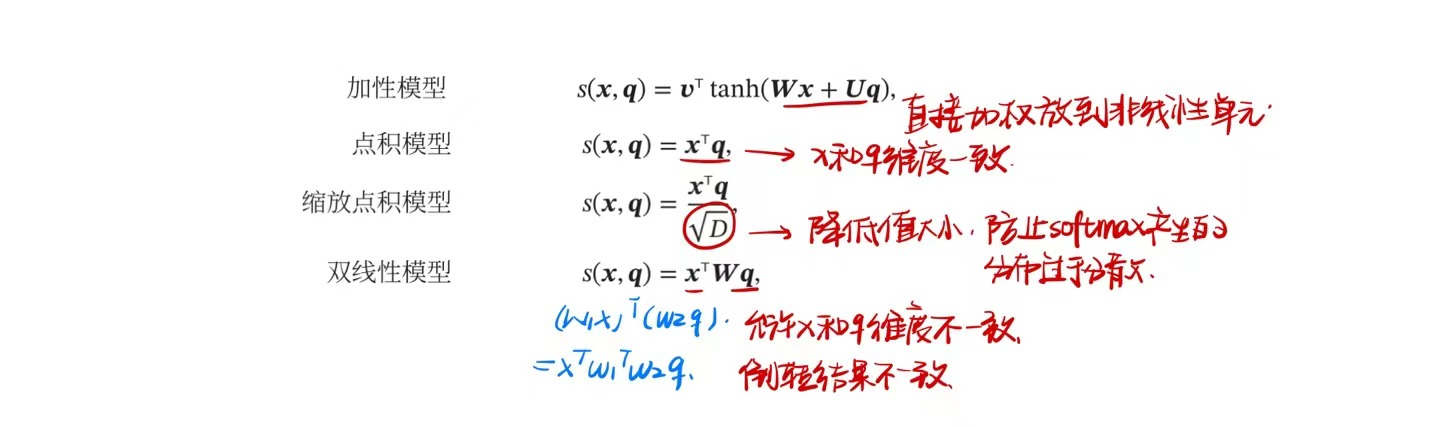 加性模型 s(x, q) = v^⊤ tanh(Wx + Uq),
直接加权放到非线性单元.
点积模型 s(x, q) = x^⊤q, → x和q维度一致.
缩放点积模型 s(x, q) = x^⊤q / √D, → 降低值大小, 防止softmax产生的
分布过于分散.
双线性模型 s(x, q) = x^⊤Wq,
(W₁x)^T(W₂q). 允许x和q维度不一致,
=x^TW₁^TW₂q. 倒转结果不一致.